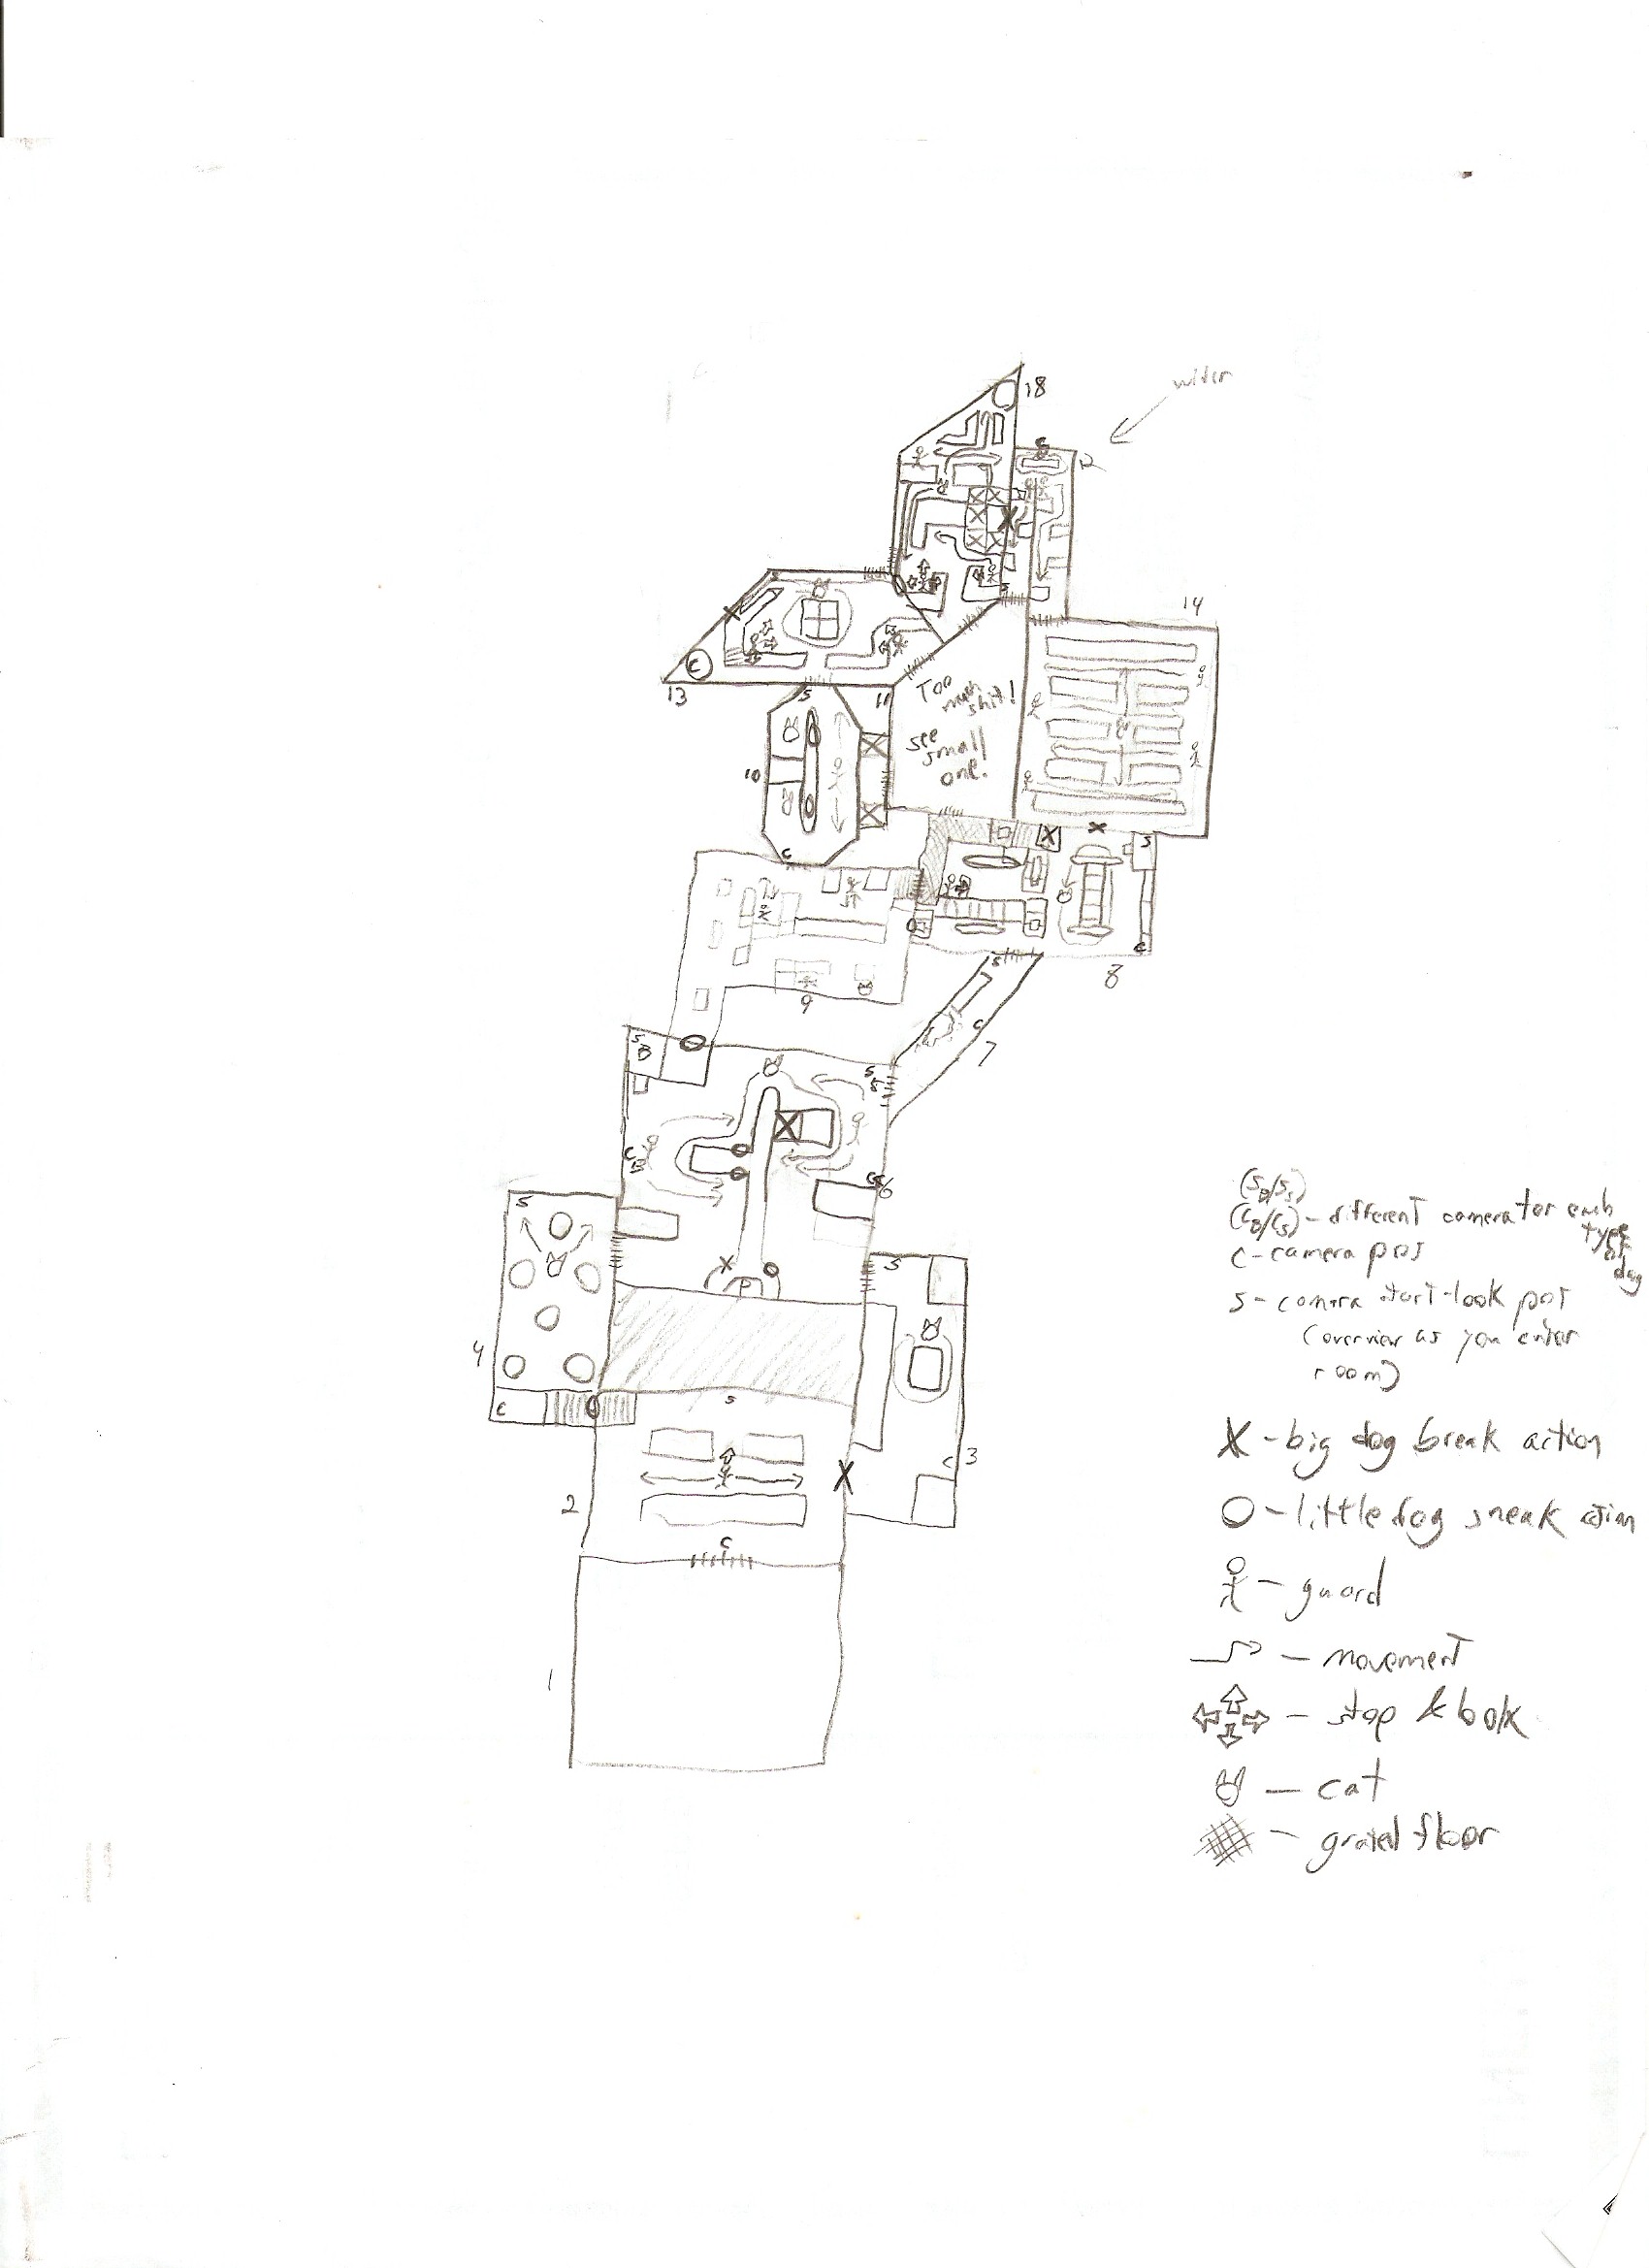 widen
18
12
14
C
S
13
11
Too
much
shit!
see
small
one.
10
C
S
C
8
9
S
C
7
S
B
S
S
C
B
6
P
S
S
4
C
S
C
3
2
C
1
(SB/SS)
(CB/CS) - different camera for each
type
of
dog
C - camera pos
S - camera start-look pos
(overview as you enter
room)
X - big dog break action
O - little dog sneak action
- guard
- movement
- stop & look
- cat
- grated floor